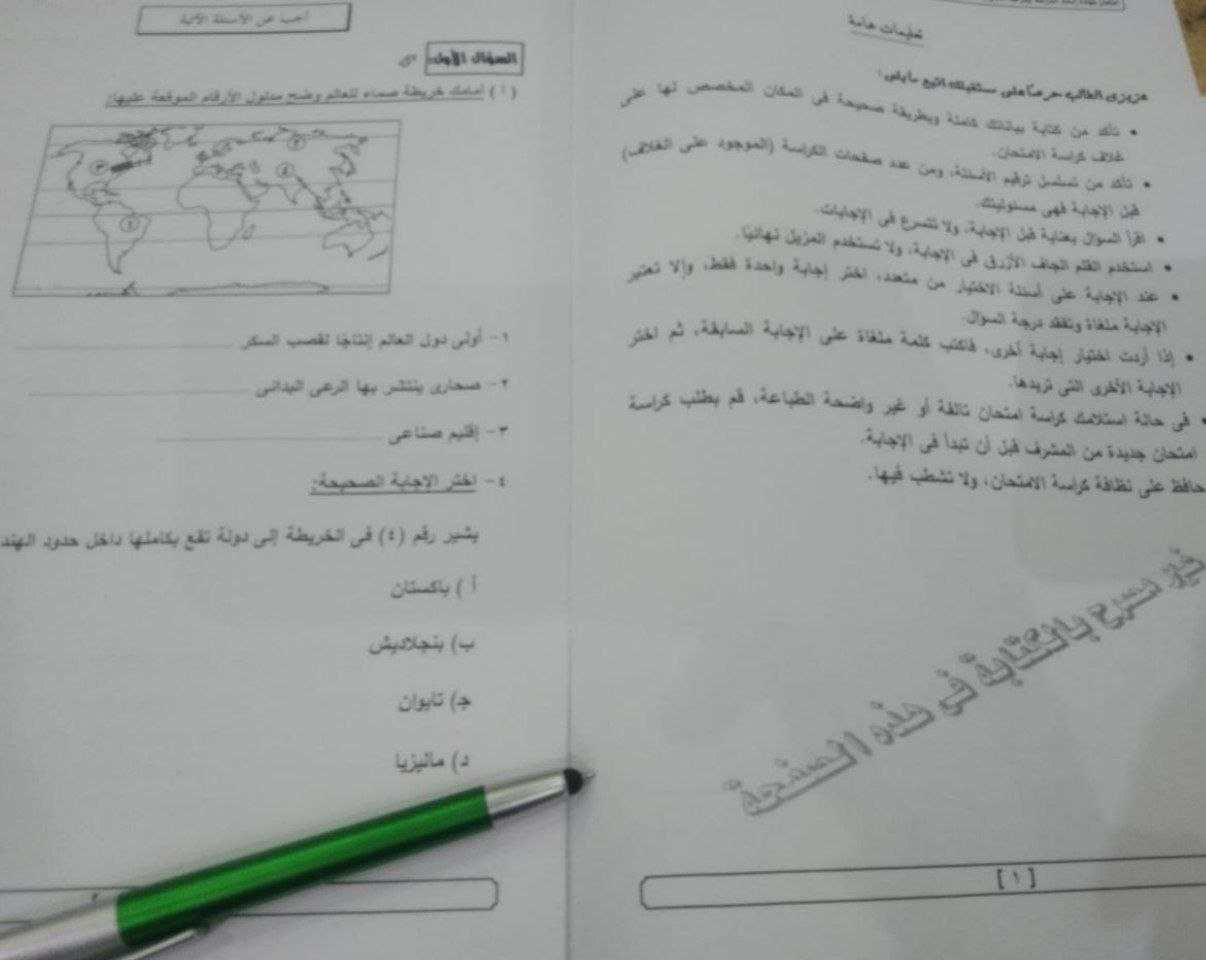 تعليمات هامة
عزيزى الطالب حرصاً على مستقبلك اتبع ما يلى:
• تأكد من كتابة بياناتك كاملة وبطريقة صحيحة فى المكان المخصص لها على
غلاف كراسة الامتحان.
• تأكد من تسلسل ترقيم الأسئلة، ومن عدد صفحات الكراسة (الموجود على الغلاف)
قبل الإجابة فهى مسئوليتك.
• اقرأ السؤال بعناية قبل الإجابة، ولا تتسرع فى الإجابات.
• استخدم القلم الجاف الأزرق فى الإجابة، ولا تستخدم المزيل نهائيًا.
• عند الإجابة على أسئلة الاختيار من متعدد، اختر إجابة واحدة فقط، وإلا تعتبر
الإجابة ملغاة وتفقد درجة السؤال.
• إذا أردت اختيار إجابة أخرى، فاكتب كلمة ملغاة على الإجابة السابقة، ثم اختر
الإجابة الأخرى التى تريدها.
• فى حالة استلامك كراسة امتحان تالفة أو غير واضحة الطباعة، قم بطلب كراسة
امتحان جديدة من المشرف قبل أن تبدأ فى الإجابة.
حافظ على نظافة كراسة الامتحان، ولا تشطب فيها.
غير مسموح بالكتابة فى هذه الصفحة
[١]
أجب عن الأسئلة الآتية
السؤال الأول:
(أ) أمامك خريطة صماء للعالم وضح مدلول الأرقام الموقعة عليها:
١- أولى دول العالم إنتاجًا لقصب السكر
٢- صحارى ينتشر بها الرعى البدائى
٣- إقليم صناعى
٤- اختر الإجابة الصحيحة:
يشير رقم (٤) فى الخريطة إلى دولة تقع بكاملها داخل حدود الهند
أ) باكستان
ب) بنجلاديش
ج) تايوان
د) ماليزيا